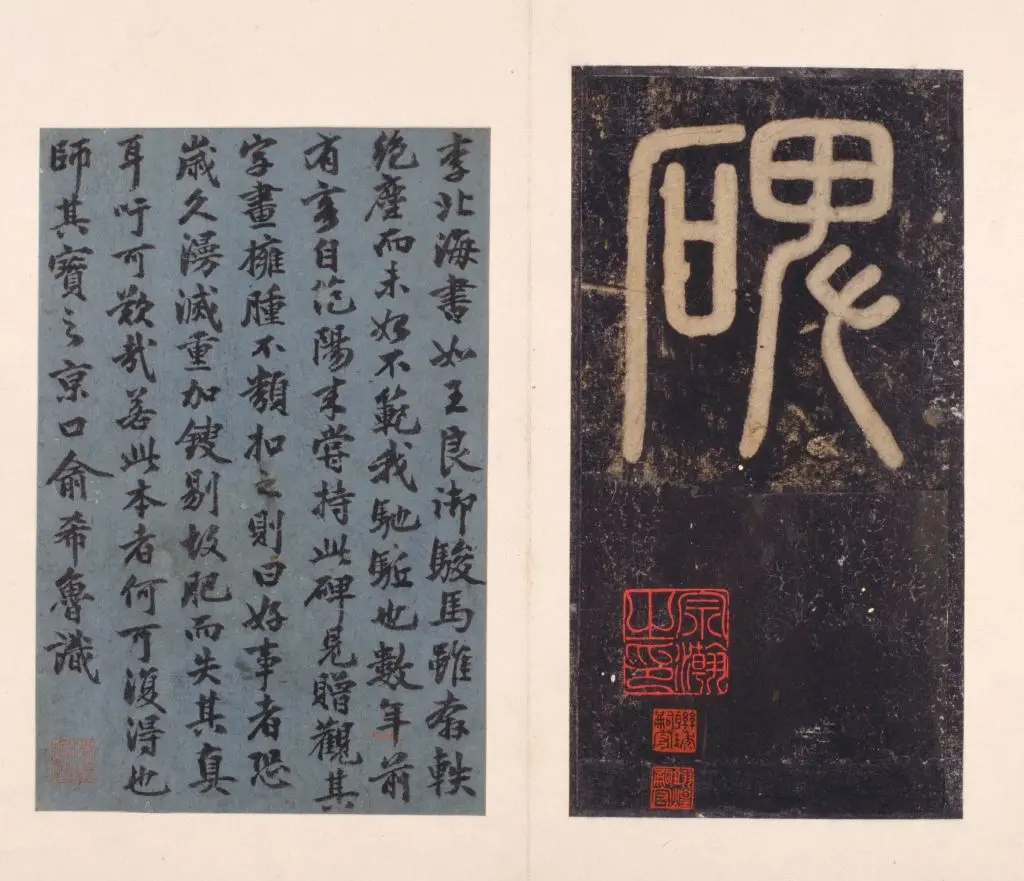 碑
宗瀚之印
李北海書如王良御駿馬雖奔軼
絕塵而未始不範我馳駈也數年前
有客自范陽來嘗持此碑見贈觀其
字畫擁腫不類扣之則曰好事者恐
歲久漫滅重加鋟剔故肥而失其真
耳吁可歎哉若此本者何可復得也
師其寶之京口俞希魯識